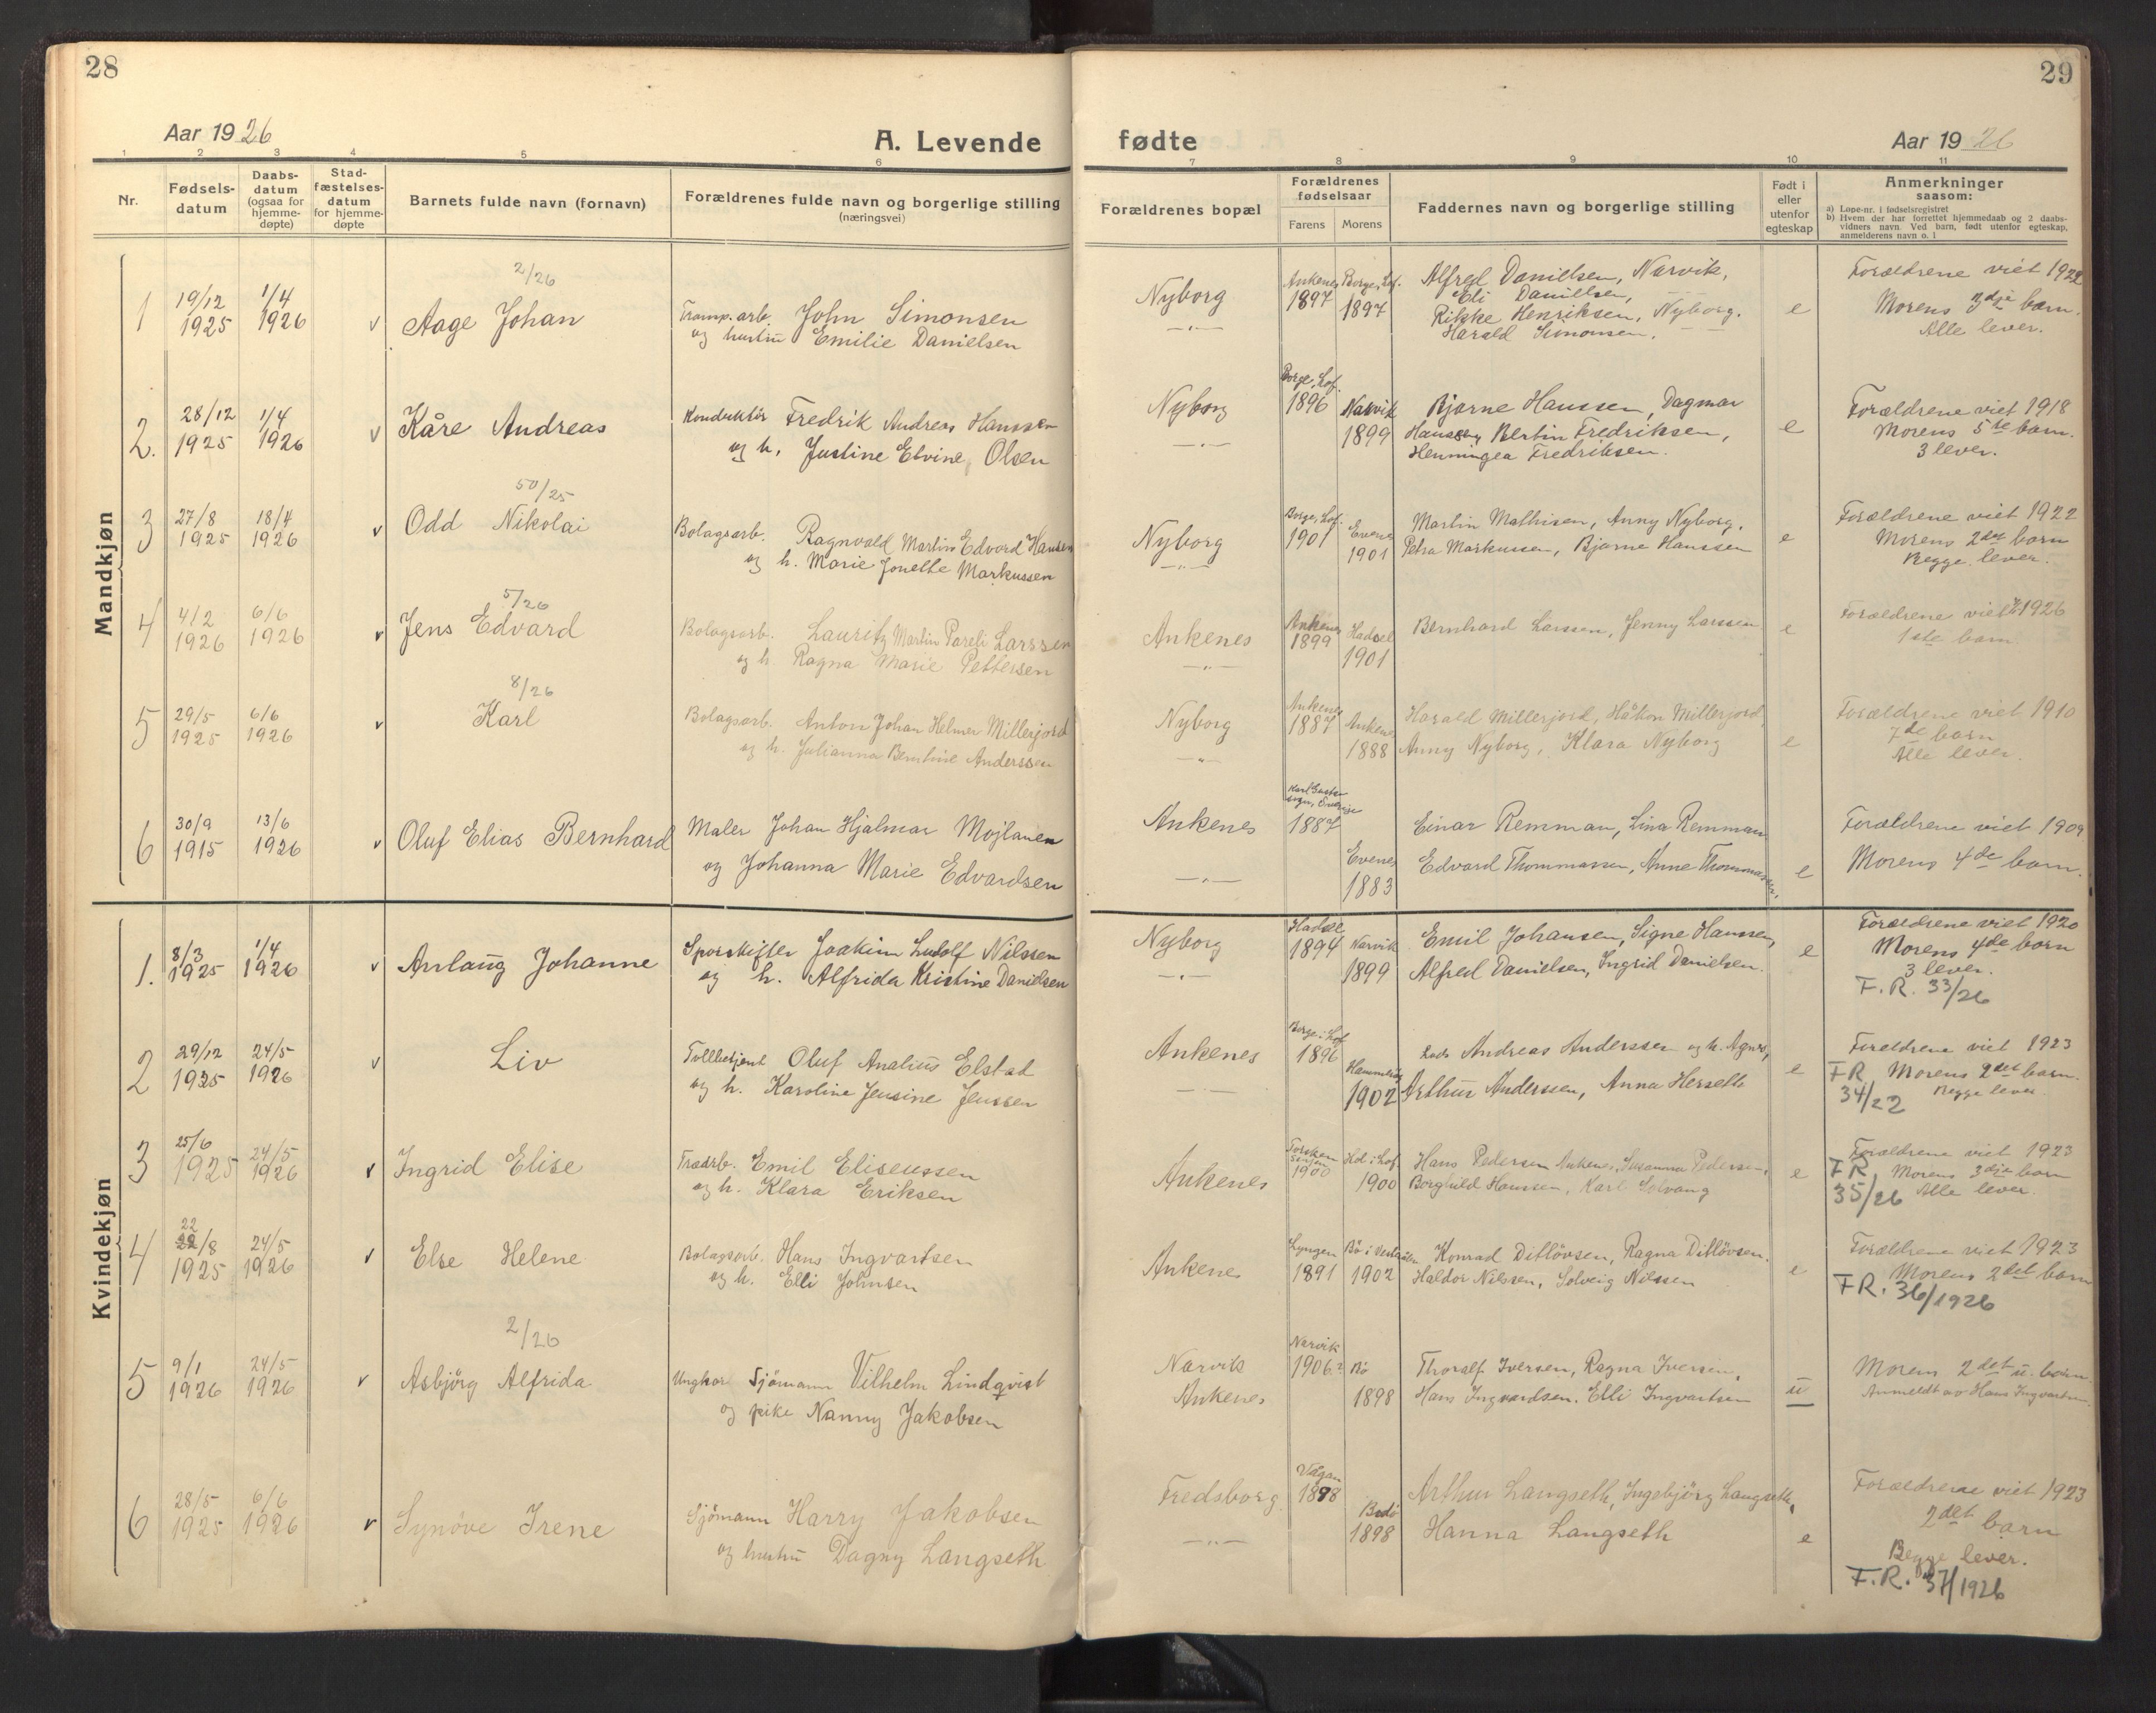 28
29
Aar 1926
A. Levende
fødte
Aar 1926
1 2 3 4 5 6
7 8 9 10 11
Nr.
Fødsels-
datum
Daabs-
datum
(ogsaa for
hjemme-
døpte)
Stad-
fæstelses-
datum
for hjemme-
døpte
Barnets fulde navn (fornavn)
Forældrenes fulde navn og borgerlige stilling
(næringsvei)
Forældrenes bopæl
Forældrenes
fødselsaar
Farens Morens
Faddernes navn og borgerlige stilling
Født i
eller
utenfor
egteskap
Anmerkninger
saasom:
a) Løpe-nr. i fødselsregistret
b) Hvem der har forrettet hjemmedaab og 2 daabs-
vidners navn. Ved barn, født utenfor egteskap,
anmelderens navn o. l
Mandkjøn
2/26
1 19/12 1925 1/4 1926 v Aage Johan
Tramp. arb. John Simonsen
og hustru Emilie Danielsen
Nyborg
—„—
Ankenes 1897
Borge, Lof. 1897
Alfred Danielsen, Narvik,
Eli Danielsen,
Rikke Henriksen, Nyborg.
Harald Simonsen.
e
Forældrene viet 1922
Morens 3dje barn.
Alle lever.
2. 28/12 1925 1/4 1926 v Kåre Andreas
Konduktör Fredrik Andreas Hanssen
og h. Justine Elvine Olsen
Nyborg
—„—
Borge, Lof. 1896
Narvik 1899
Bjarne Hanssen, Dagmar
Hanssen, Bertin Fredriksen,
Henningea Fredriksen.
e
Forældrene viet 1918
Morens 5te barn.
3 lever.
50/25
3 27/8 1925 18/4 1926 v Odd Nikolai
Bolagsarb. Ragnvald Martin Edvard Hansen
og h. Marie Jonette Markussen
Nyborg
—„—
Borge, Lof. 1901
Evenes 1901
Martin Mathisen, Anny Nyborg,
Petra Markussen, Bjarne Hanssen
e
Forældrene viet 1922
Morens 2det barn
Begge lever.
5/26
4 4/2 1926 6/6 1926 v Jens Edvard
Bolagsarb. Lauritz Martin Pareli Larssen
og h. Ragna Marie Pettersen
Ankenes
—„—
Ankenes 1899
Hadsel 1901
Bernhard Larssen, Jenny Larssen
e
Forældrene viet 1926
1ste barn
8/26
5 29/5 1925 6/6 1926 v Karl
Bolagsarb. Anton Johan Helmer Millerjord
og h. Julianna Berntine Anderssen
Nyborg
—„—
Ankenes 1887
Ankenes 1888
Harald Millerjord, Håkon Millerjord,
Anny Nyborg, Klara Nyborg
e
Forældrene viet 1910
7de barn
Alle lever.
6 30/9 1915 13/6 1926 v Oluf Elias Bernhard
Maler Johan Hjalmar Mojlanen
og Johanna Marie Edvardsen
Ankenes
—„—
Karl Gustav
sogn, Sverige
1887
Evenes 1883
Einar Remman, Lina Remman
Edvard Thommassen, Anne Thommassen,
e
Forældrene viet 1909
Morens 4de barn.
Kvindekjøn
1. 8/3 1925 1/4 1926 v Anlaug Johanne
Sporskifter Joakim Ludolf Nilssen
og h. Alfrida Kristine Danielsen
Nyborg
—„—
Hadsel 1894
Narvik 1899
Emil Johansen, Signe Hanssen,
Alfred Danielsen, Ingrid Danielsen.
e
Forældrene viet 1920
Morens 4de barn
3 lever.
F. R. 33/26
2 29/12 1925 24/5 1926 v Liv
Tollbetjent Oluf Analius Elstad
og h. Karoline Jensine Jenssen
Ankenes
— —
Borge i Lof 1896
1902
Andreas Anderssen og h. Agnes,
Arthur Anderssen, Anna Herseth
e
Forældrene viet 1923
FR Morens 2det barn.
34/22 Begge lever.
3 25/6 1925 24/5 1926 v Ingrid Elise
Emil Eliseussen
og h. Klara Eriksen
Ankenes
Torsken
Senjen
1900
i Lof 1900
Hans Pedersen Ankenes, Susanna Pedersen,
Borghild Hanssen, Karl Solvang
e
Forældrene viet 1923
FR, Morens 3dje barn
35/26 Alle lever.
4 22/8 1925 24/5 1926 v Else Helene
Bolagsarb. Hans Ingvartsen
og h. Elli Johnsen
Ankenes
Lyngen 1891
Bö i Vesterålen 1902
Konrad Ditlövsen, Ragna Ditlövsen.
Haldor Nilssen, Solveig Nilssen
e
Forældrene viet 1923
Morens 2det barn
FR. 36/1926
2/26
5 9/1 1926 24/5 1926 v Asbjörg Alfrida
Ungkar Sjömann Vilhelm Lindqvist
og pike Nanny Jakobsen
Narvik
Ankenes
Narvik 1906?
Bö 1898
Thoralf Iversen, Ragna Iversen,
Hans Ingvardsen. Elli Ingvartsen
u
Morens 2det u. barn.
Anmeldt av Hans Ingvartsen.
6 28/5 1925 6/6 1926 v Synöve Irene
Sjömann Harry Jakobsen
og hustru Dagny Langseth
Fredsborg
—„—
Vågan 1898
Bodö 1898
Arthur Langseth, Ingebjörg Langseth,
Hanna Langseth
e
Forældrene viet 1923
2det barn
Begge lever.
F. R. 37/1926